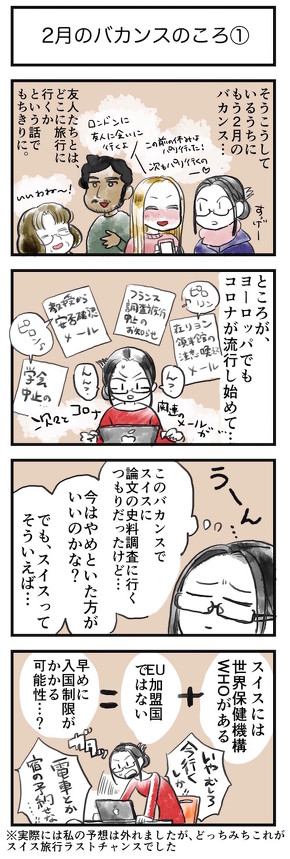 2月のバカンスのころ①
そうこうして
いるうちに
もう2月の
バカンス…
すげー
この前の休みは
パリ行った!
次もパリ行くの
ロンドンに
友人に会いに
行くよ
いいわね〜!
友人たちとは
どこに旅行に
行くか
という話で
もちきりに。
ところが、
ヨーロッパでも
コロナが流行し始めて…
ピロリン
在リヨン
領事館の
注意喚起
メール
フランス
調査旅行
中止の
お知らせ
教授から
安否確認
メール
ピロリン
学会
中止の
ん?
ん?
次々と
コロナ
関連の
メールが…
うーん
このバカンスで
スイスに
論文の史料調査に行く
つもりだったけど…
今はやめといた方が
いいのかな?
でも、スイスって
そういえば…
スイスには
世界保健機構
WHOがある
+
EU加盟国
ではない
=
早めに
入国制限が
かかる
可能性…?
いやむしろ
今行く
しか
電車とか
宿の予約さな
※実際には私の予想は外れましたが、どっちみちこれが
スイス旅行ラストチャンスでした